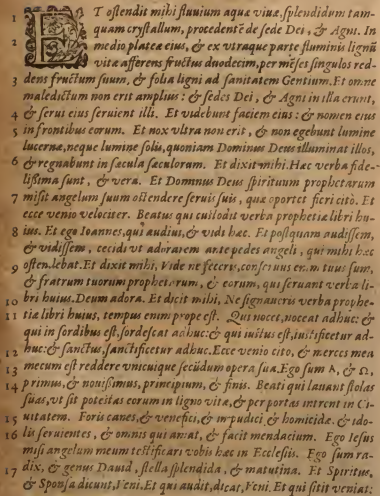 1 ET ostendit mihi fluuium aquæ viuæ, splendidum tam-
quam crystallum, procedentē de sede Dei, & Agni. In
2 medio plateæ eius, & ex vtraque parte fluminis lignū
vitæ afferens fructus duodecim, per mēses singulos red-
3 dens fructum suum, & folia ligni ad sanitatem Gentium. Et omne
maledictum non erit amplius: & sedes Dei, & Agni in illa erunt,
4 & serui eius seruient illi. Et videbunt faciem eius: & nomen eius
5 in frontibus eorum. Et nox vltra non erit, & non egebunt lumine
lucernæ, neque lumine solis, quoniam Dominus Deus illuminat illos,
6 & regnabunt in sæcula sæculorum. Et dixit mihi. Hæc verba fide-
lissima sunt, & vera. Et Dominus Deus spirituum prophetarum
7 misit angelum suum ostendere seruis suis, quæ oportet fieri citò. Et
ecce venio velociter. Beatus qui custodit verba prophetiæ libri hu-
8 ius. Et ego Ioannes, qui audiui, & vidi hæc. Et postquam audissem,
& vidissem, cecidi vt adorarem ante pedes angeli, qui mihi hæc
9 ostendebat. Et dixit mihi, Vide ne feceris, conseruus enim tuus sum,
& fratrum tuorum prophetarum, & eorum, qui seruant verba li-
10 bri huius. Deum adora. Et dicit mihi, Ne signaueris verba prophe-
11 tiæ libri huius, tempus enim prope est. Qui nocet, noceat adhuc: &
qui in sordibus est, sordescat adhuc: & qui iustus est, iustificetur ad-
12 huc: & sanctus, sanctificetur adhuc. Ecce venio cito, & merces mea
13 mecum est reddere vnicuique secūdum opera sua. Ego sum A, & Ω,
14 primus, & nouissimus, principium, & finis. Beati qui lauant stolas
suas, vt sit potestas eorum in ligno vitæ, & per portas intrent in Ci-
15 uitatem. Foris canes, & venefici, & impudici & homicidæ & ido-
16 lis seruientes, & omnis qui amat, & facit mendacium. Ego Iesus
misi angelum meum testificari vobis hæc in Ecclesiis. Ego sum ra-
17 dix, & genus Dauid, stella splendida, & matutina. Et Spiritus,
& Sponsa dicunt, Veni. Et qui audit, dicat, Veni. Et qui sitit veniat: